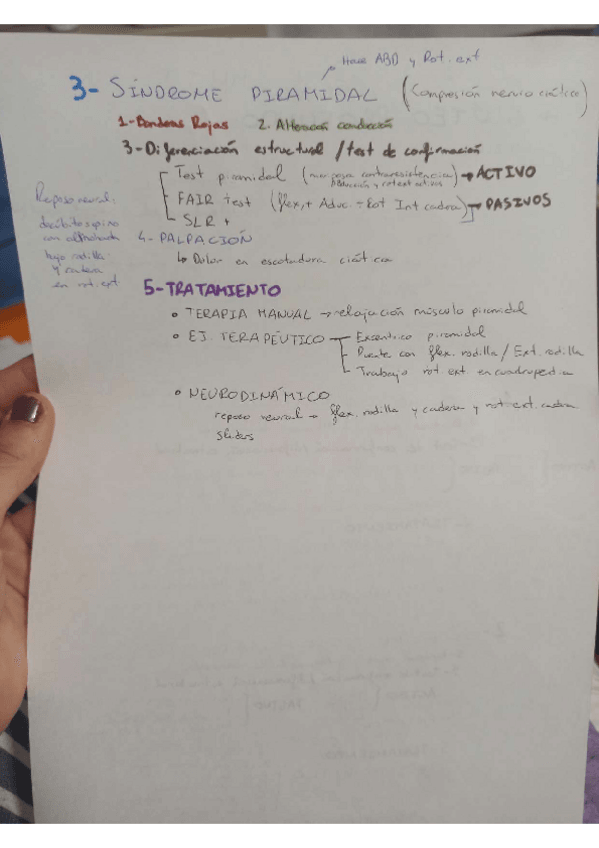 Hace ABD y Rot. ext
3- SÍNDROME PIRAMIDAL (Compresión nervio ciático)
1-Banderas Rojas 2. Alteración conducción
3-Diferenciación estructural / test de confirmación
Test piramidal (contraresistencia) → ACTIVO
Abducción y rotext activos
FAIR test (flex, + Aduc. + Rot Int cadera) → PASIVOS
SLR +
Reposo neural:
decúbito supino
con almohada
bajo rodilla
y cadera
en rot. ext
4- PALPACIÓN
↳ Dolor en escotadura ciática
5-TRATAMIENTO
• TERAPIA MANUAL → relajación músculo piramidal
• EJ. TERAPÉUTICO Excéntrico piramidal
Puente con flex. rodilla / Ext. rodilla
Trabajo rot. ext en cuadrupedia
• NEURODINÁMICO
reposo neural → flex. rodilla y cadera y rot ext. cadera
Sliders